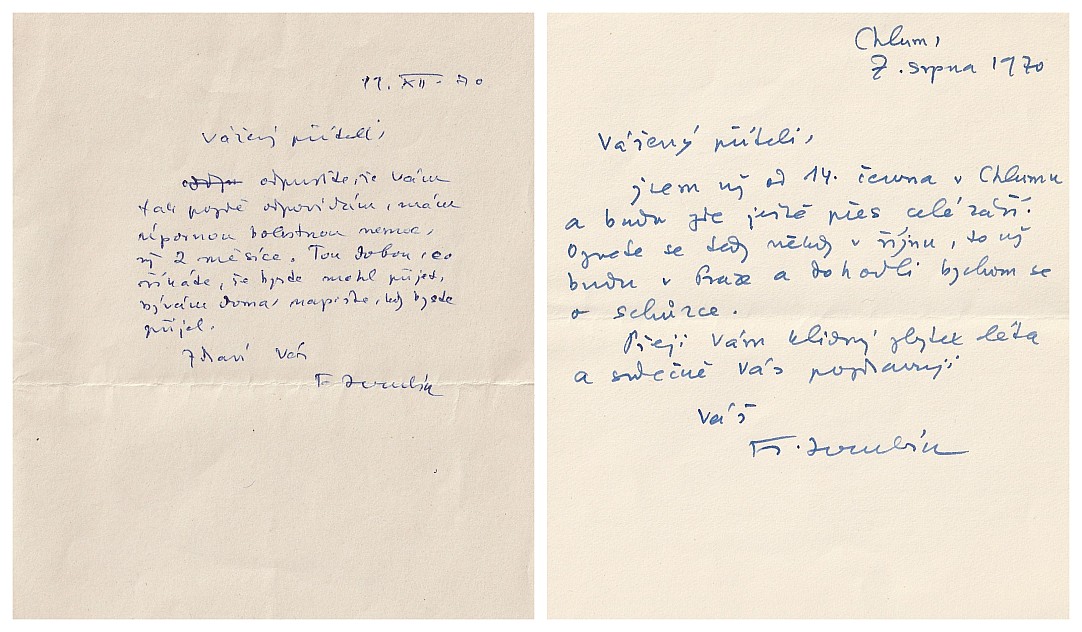 11. XII. 70
Vážený příteli,
odpusťte, že Vám
tak pozdě odpovídám, mám
úpornou bolestnou nemoc,
už 2 měsíce. Tou dobou, co
říkáte, že byste mohl přijet,
bývám doma, napište, kdy byste
přijel.
Zdraví Vás
Fr. Hrubín
Chlum,
7. srpna 1970
Vážený příteli,
jsem už od 14. června v Chlumu
a budu zde ještě přes celé září.
Ozvěte se tedy někdy v říjnu, to už
budu v Praze a dohodli bychom se
o schůzce.
Přeji Vám klidný zbytek léta
a srdečně Vás pozdravuji
Váš
Fr. Hrubín